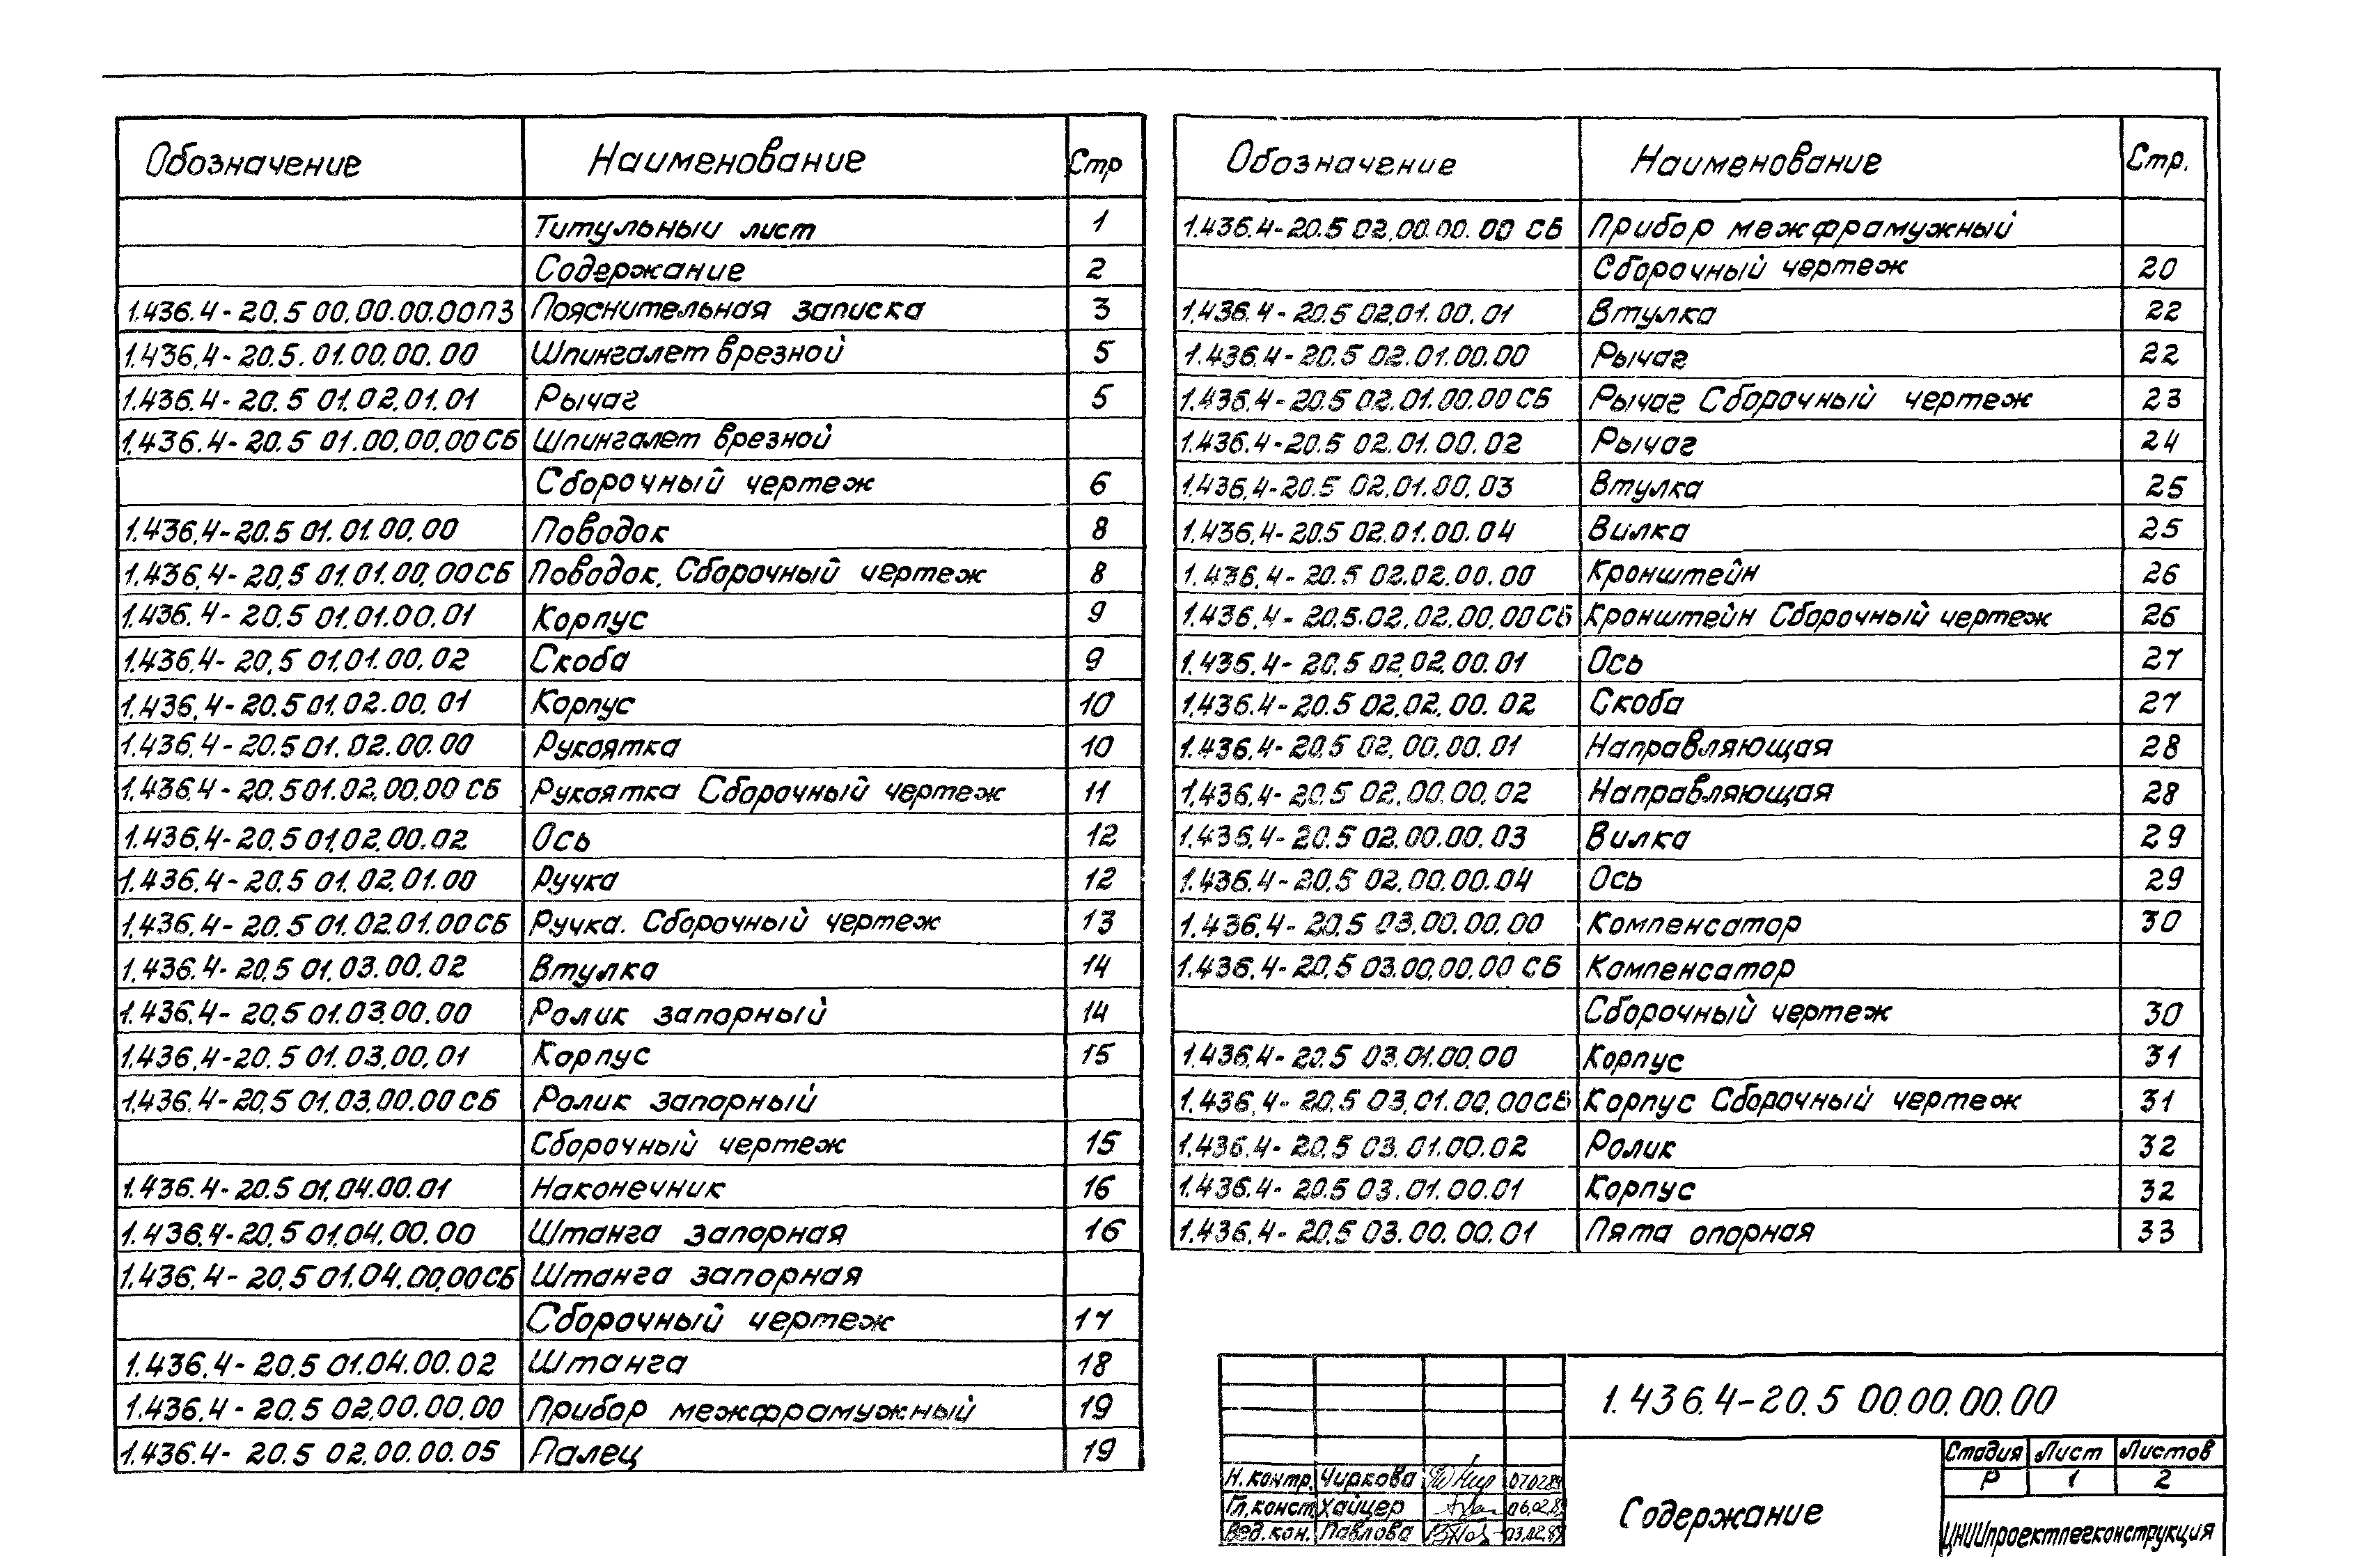 Обозначение Наименование Стр
Титульный лист 1
Содержание 2
1.436.4-20.5 00.00.00.00ПЗ Пояснительная записка 3
1.436.4-20.5.01.00.00.00 Шпингалет врезной 5
1.436.4-20.5 01.02.01.01 Рычаг 5
1.436.4-20.5 01.00.00.00СБ Шпингалет врезной
Сборочный чертеж 6
1.436.4-20.5 01.01.00.00 Поводок 8
1.436.4-20.5 01.01.00.00СБ Поводок. Сборочный чертеж 8
1.436.4-20.5 01.01.00.01 Корпус 9
1.436.4-20.5 01.01.00.02 Скоба 9
1.436.4-20.5 01.02.00.01 Корпус 10
1.436.4-20.5 01.02.00.00 Рукоятка 10
1.436.4-20.5 01.02.00.00 СБ Рукоятка Сборочный чертеж 11
1.436.4-20.5 01.02.00.02 Ось 12
1.436.4-20.5 01.02.01.00 Ручка 12
1.436.4-20.5 01.02.01.00СБ Ручка. Сборочный чертеж 13
1.436.4-20.5 01.03.00.02 Втулка 14
1.436.4-20.5 01.03.00.00 Ролик запорный 14
1.436.4-20.5 01.03.00.01 Корпус 15
1.436.4-20.5 01.03.00.00СБ Ролик запорный
Сборочный чертеж 15
1.436.4-20.5 01.04.00.01 Наконечник 16
1.436.4-20.5 01.04.00.00 Штанга запорная 16
1.436.4-20.5 01.04.00.00СБ Штанга запорная
Сборочный чертеж 17
1.436.4-20.5 01.04.00.02 Штанга 18
1.436.4-20.5 02.00.00.00 Прибор межфрамужный 19
1.436.4-20.5 02.00.00.05 Палец 19
Обозначение Наименование Стр.
1.436.4-20.5 02.00.00.00 СБ Прибор межфрамужный
Сборочный чертеж 20
1.436.4-20.5 02.01.00.01 Втулка 22
1.436.4-20.5 02.01.00.00 Рычаг 22
1.436.4-20.5 02.01.00.00 СБ Рычаг Сборочный чертеж 23
1.436.4-20.5 02.01.00.02 Рычаг 24
1.436.4-20.5 02.01.00.03 Втулка 25
1.436.4-20.5 02.01.00.04 Вилка 25
1.436.4-20.5 02.02.00.00 Кронштейн 26
1.436.4-20.5.02.02.00.00СБ Кронштейн Сборочный чертеж 26
1.436.4-20.5 02.02.00.01 Ось 27
1.436.4-20.5 02.02.00.02 Скоба 27
1.436.4-20.5 02.00.00.01 Направляющая 28
1.436.4-20.5 02.00.00.02 Направляющая 28
1.436.4-20.5 02.00.00.03 Вилка 29
1.436.4-20.5 02.00.00.04 Ось 29
1.436.4-20.5 03.00.00.00 Компенсатор 30
1.436.4-20.5 03.00.00.00 СБ Компенсатор
Сборочный чертеж 30
1.436.4-20.5 03.01.00.00 Корпус 31
1.436.4-20.5 03.01.00.00СБ Корпус Сборочный чертеж 31
1.436.4-20.5 03.01.00.02 Ролик 32
1.436.4-20.5 03.01.00.01 Корпус 32
1.436.4-20.5 03.00.00.01 Пята опорная 33
1.436.4-20.5 00.00.00.00
Н.контр. Чиркова
Гл.конст. Хайцер
Вед.кон. Павлова
Содержание
Стадия Лист Листов
Р 1 2
ЦНИИпроектлегконструкция